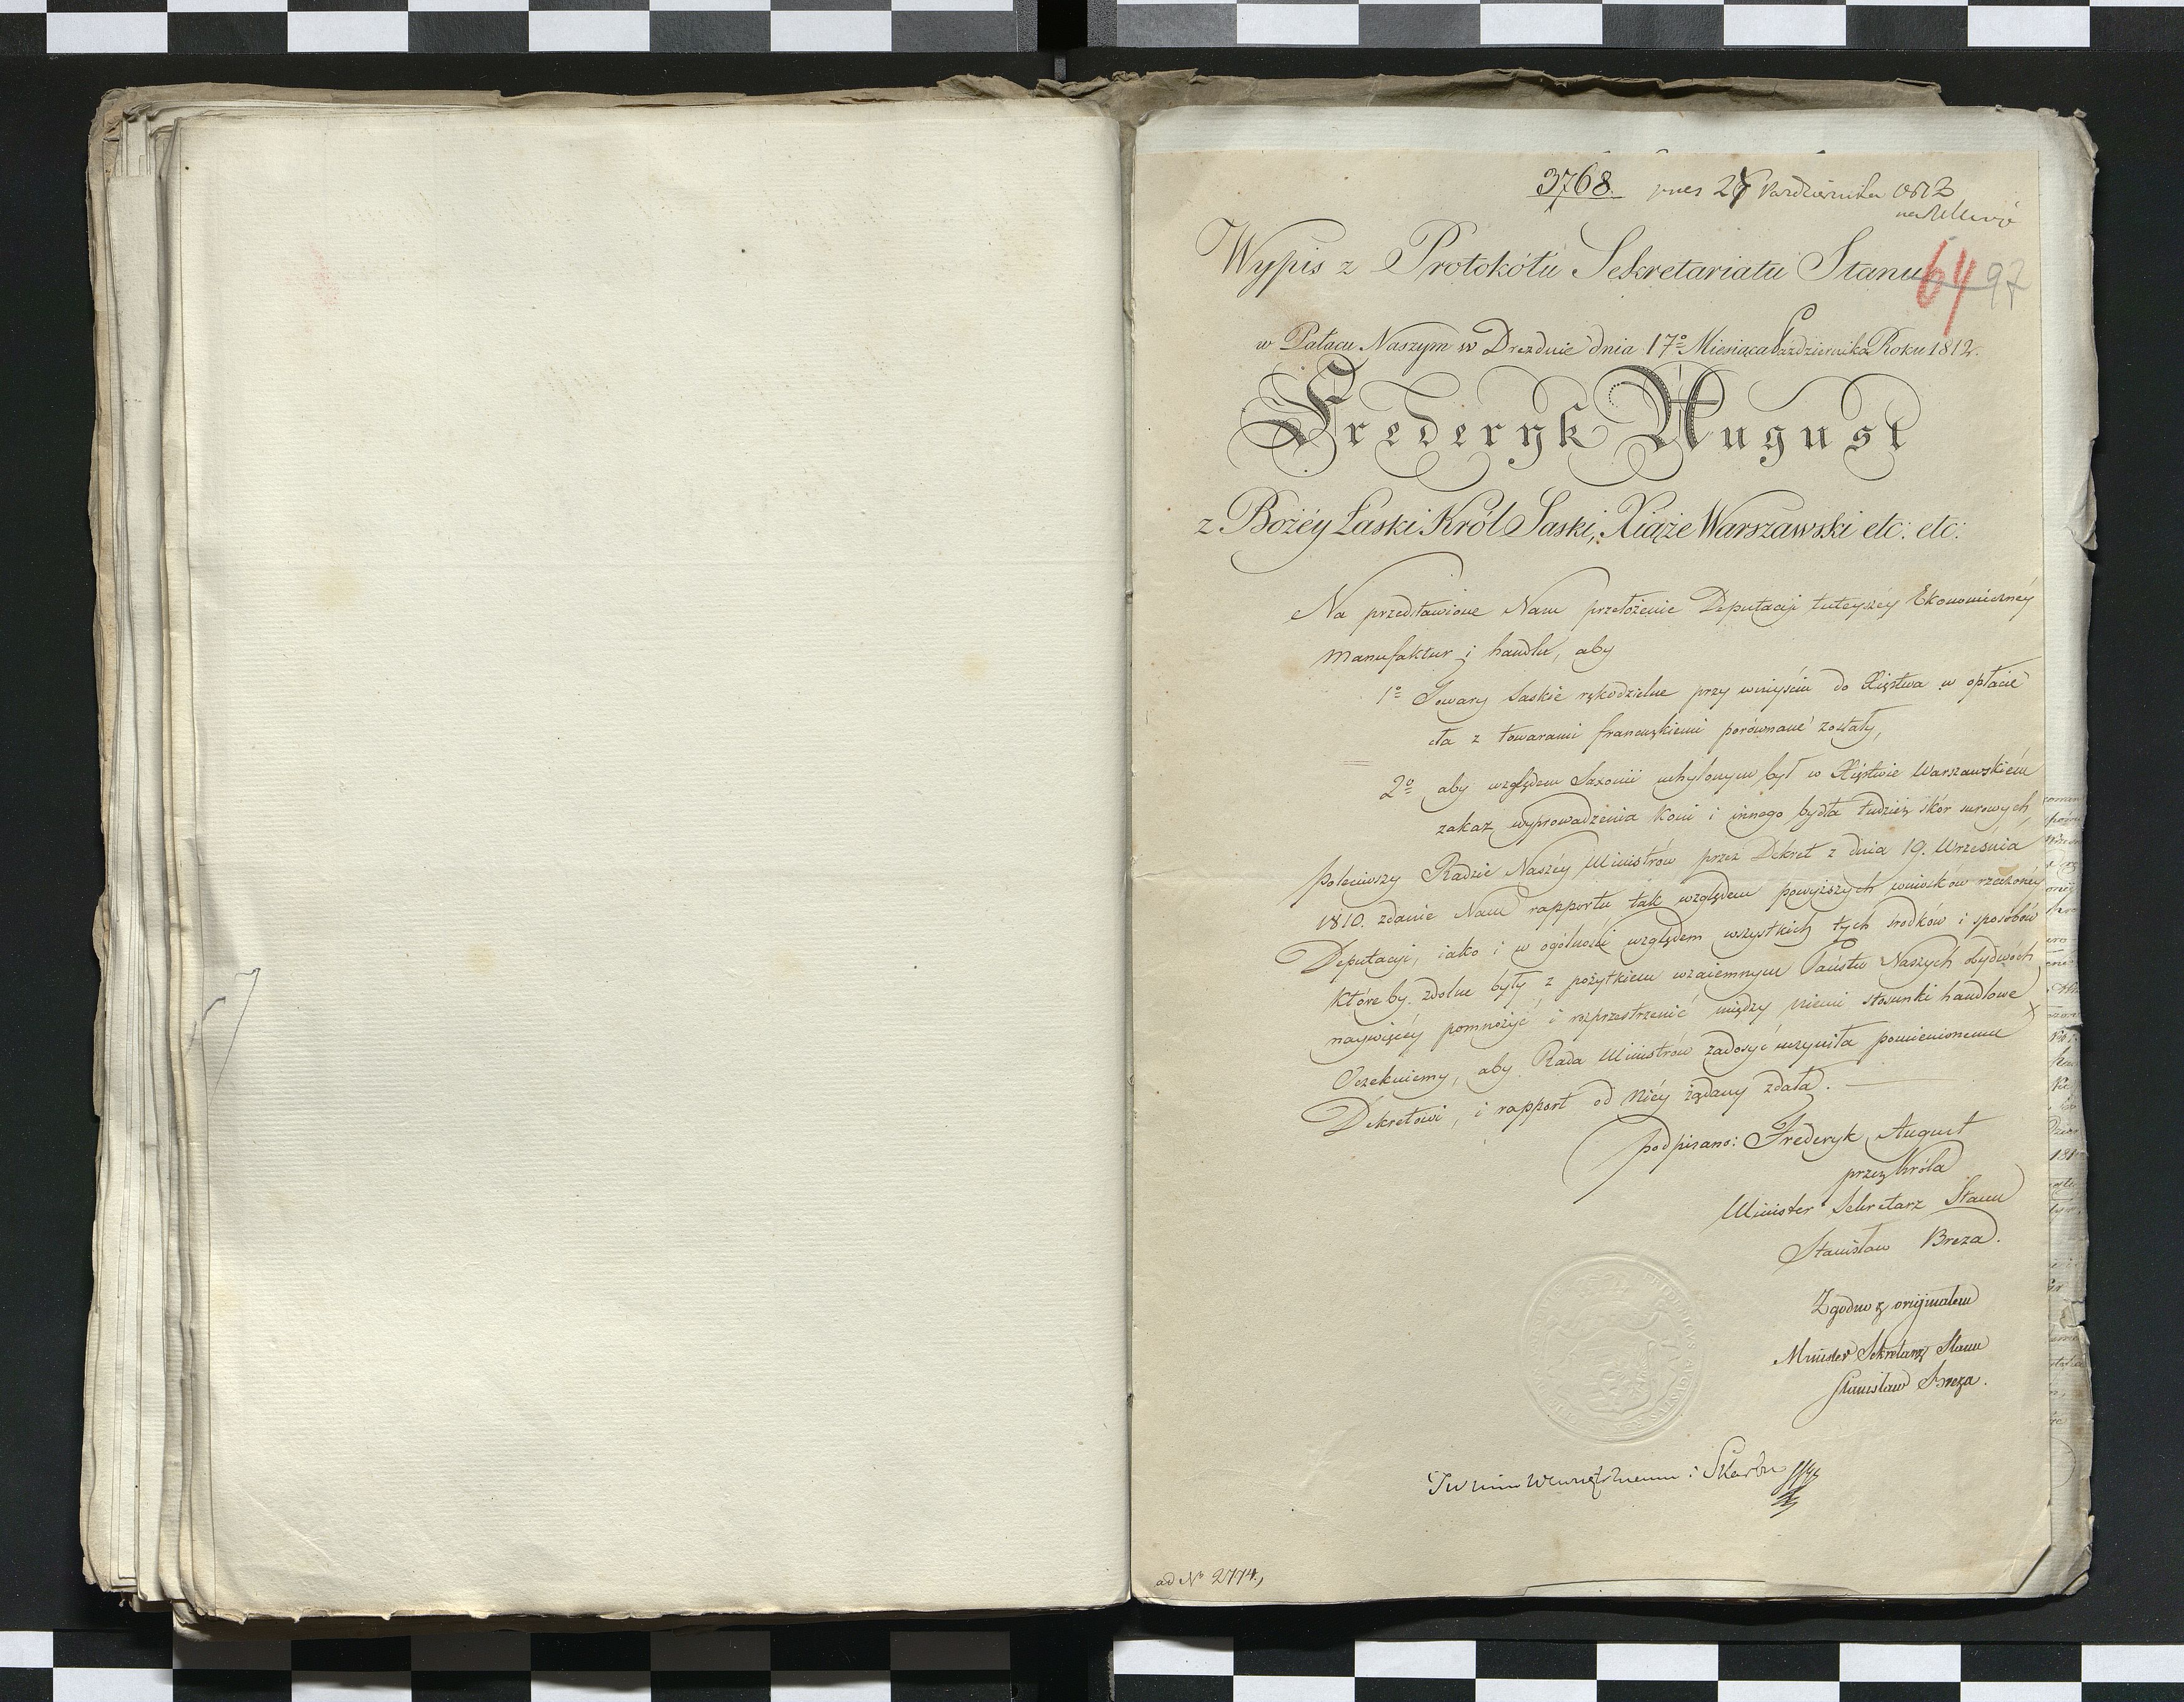 3768. pnes 27 Października 1812
Wypis z Protokółu Sekretariatu Stanu
64 97
w Pałacu Naszym w Dreznie dnia 17º Miesiąca Października Roku 1812.
Frederyk August
z Bożéy Łaski Król Saski, Xiąże Warszawski etc: etc:
Na przedstawione Nam przełożenie Deputacji tuteyszéy Ekonomicznéy
Manufaktur i handlu, aby
1º Towary Saskie rękodzielne przy wniyściu do Xięstwa w opłacie
cła z towarami francuzkiemi porównane zostały,
2º aby względem Saxonii uchylonym był w Xięstwie Warszawskiém
zakaz wyprowadzenia koni i innego bydła tudzież skór surowych,
poleciwszy Radzie Naszéy Ministrów przez Dekret z dnia 19. Września
1810. zdanie Nam rapportu tak względem powyższych wniosków rzeczonéy
Deputacji, iako i w ogólności względem wszystkich tych środków i sposobów
któreby zdolne były z pożytkiem wzaiemnym Państw Naszych obydwóch
naywięcéy pomnożyć i rozprzestrzenić między niemi stosunki handlowe
Oczekuiemy, aby Rada Ministrów zadosyć uczyniła pomienionemu
Dekretowi, i rapport od Niéy żądany zdała.
podpisano: Frederyk August
przez Króla
Minister Sekretarz Stanu
Stanisław Breza.
Zgodno z oryginałem
Minister Sekretarz Stanu
Stanisław Breza.
Wewnętrznemu i Skarbu
ad Nº 2774.,